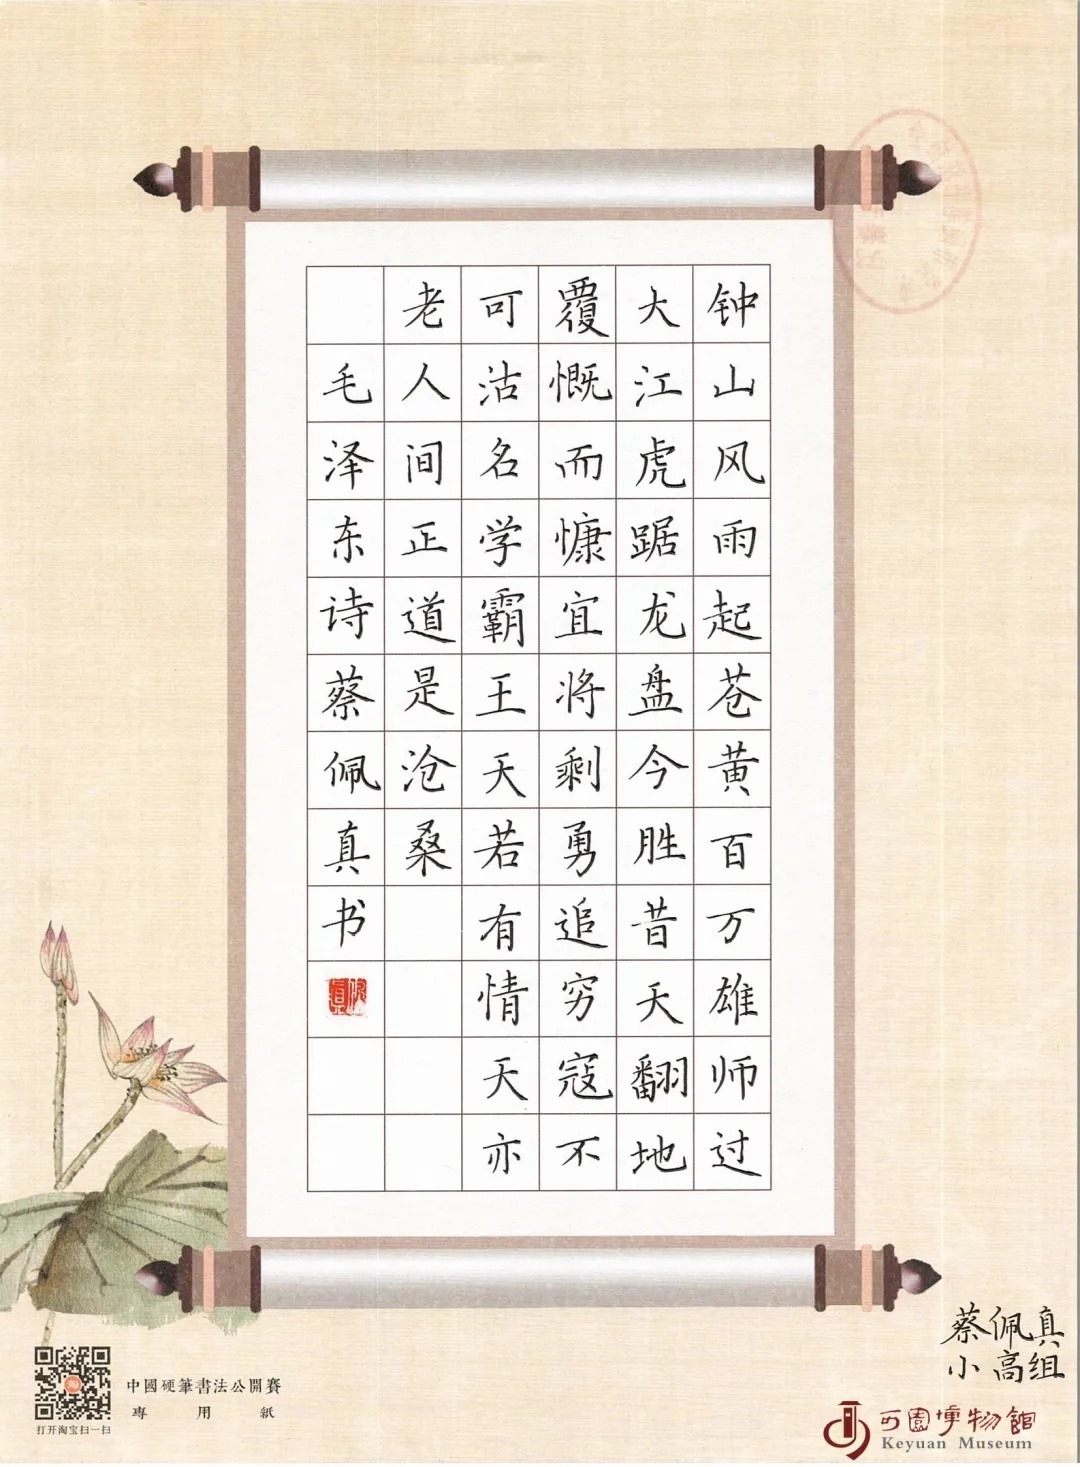 钟山风雨起苍黄百万雄师过
大江虎踞龙盘今胜昔天翻地
覆慨而慷宜将剩勇追穷寇不
可沽名学霸王天若有情天亦
老人间正道是沧桑
毛泽东诗蔡佩真书
蔡佩真
小高组
中國硬筆書法公開賽
專用紙
打开淘宝扫一扫
可園博物館
Keyuan Museum